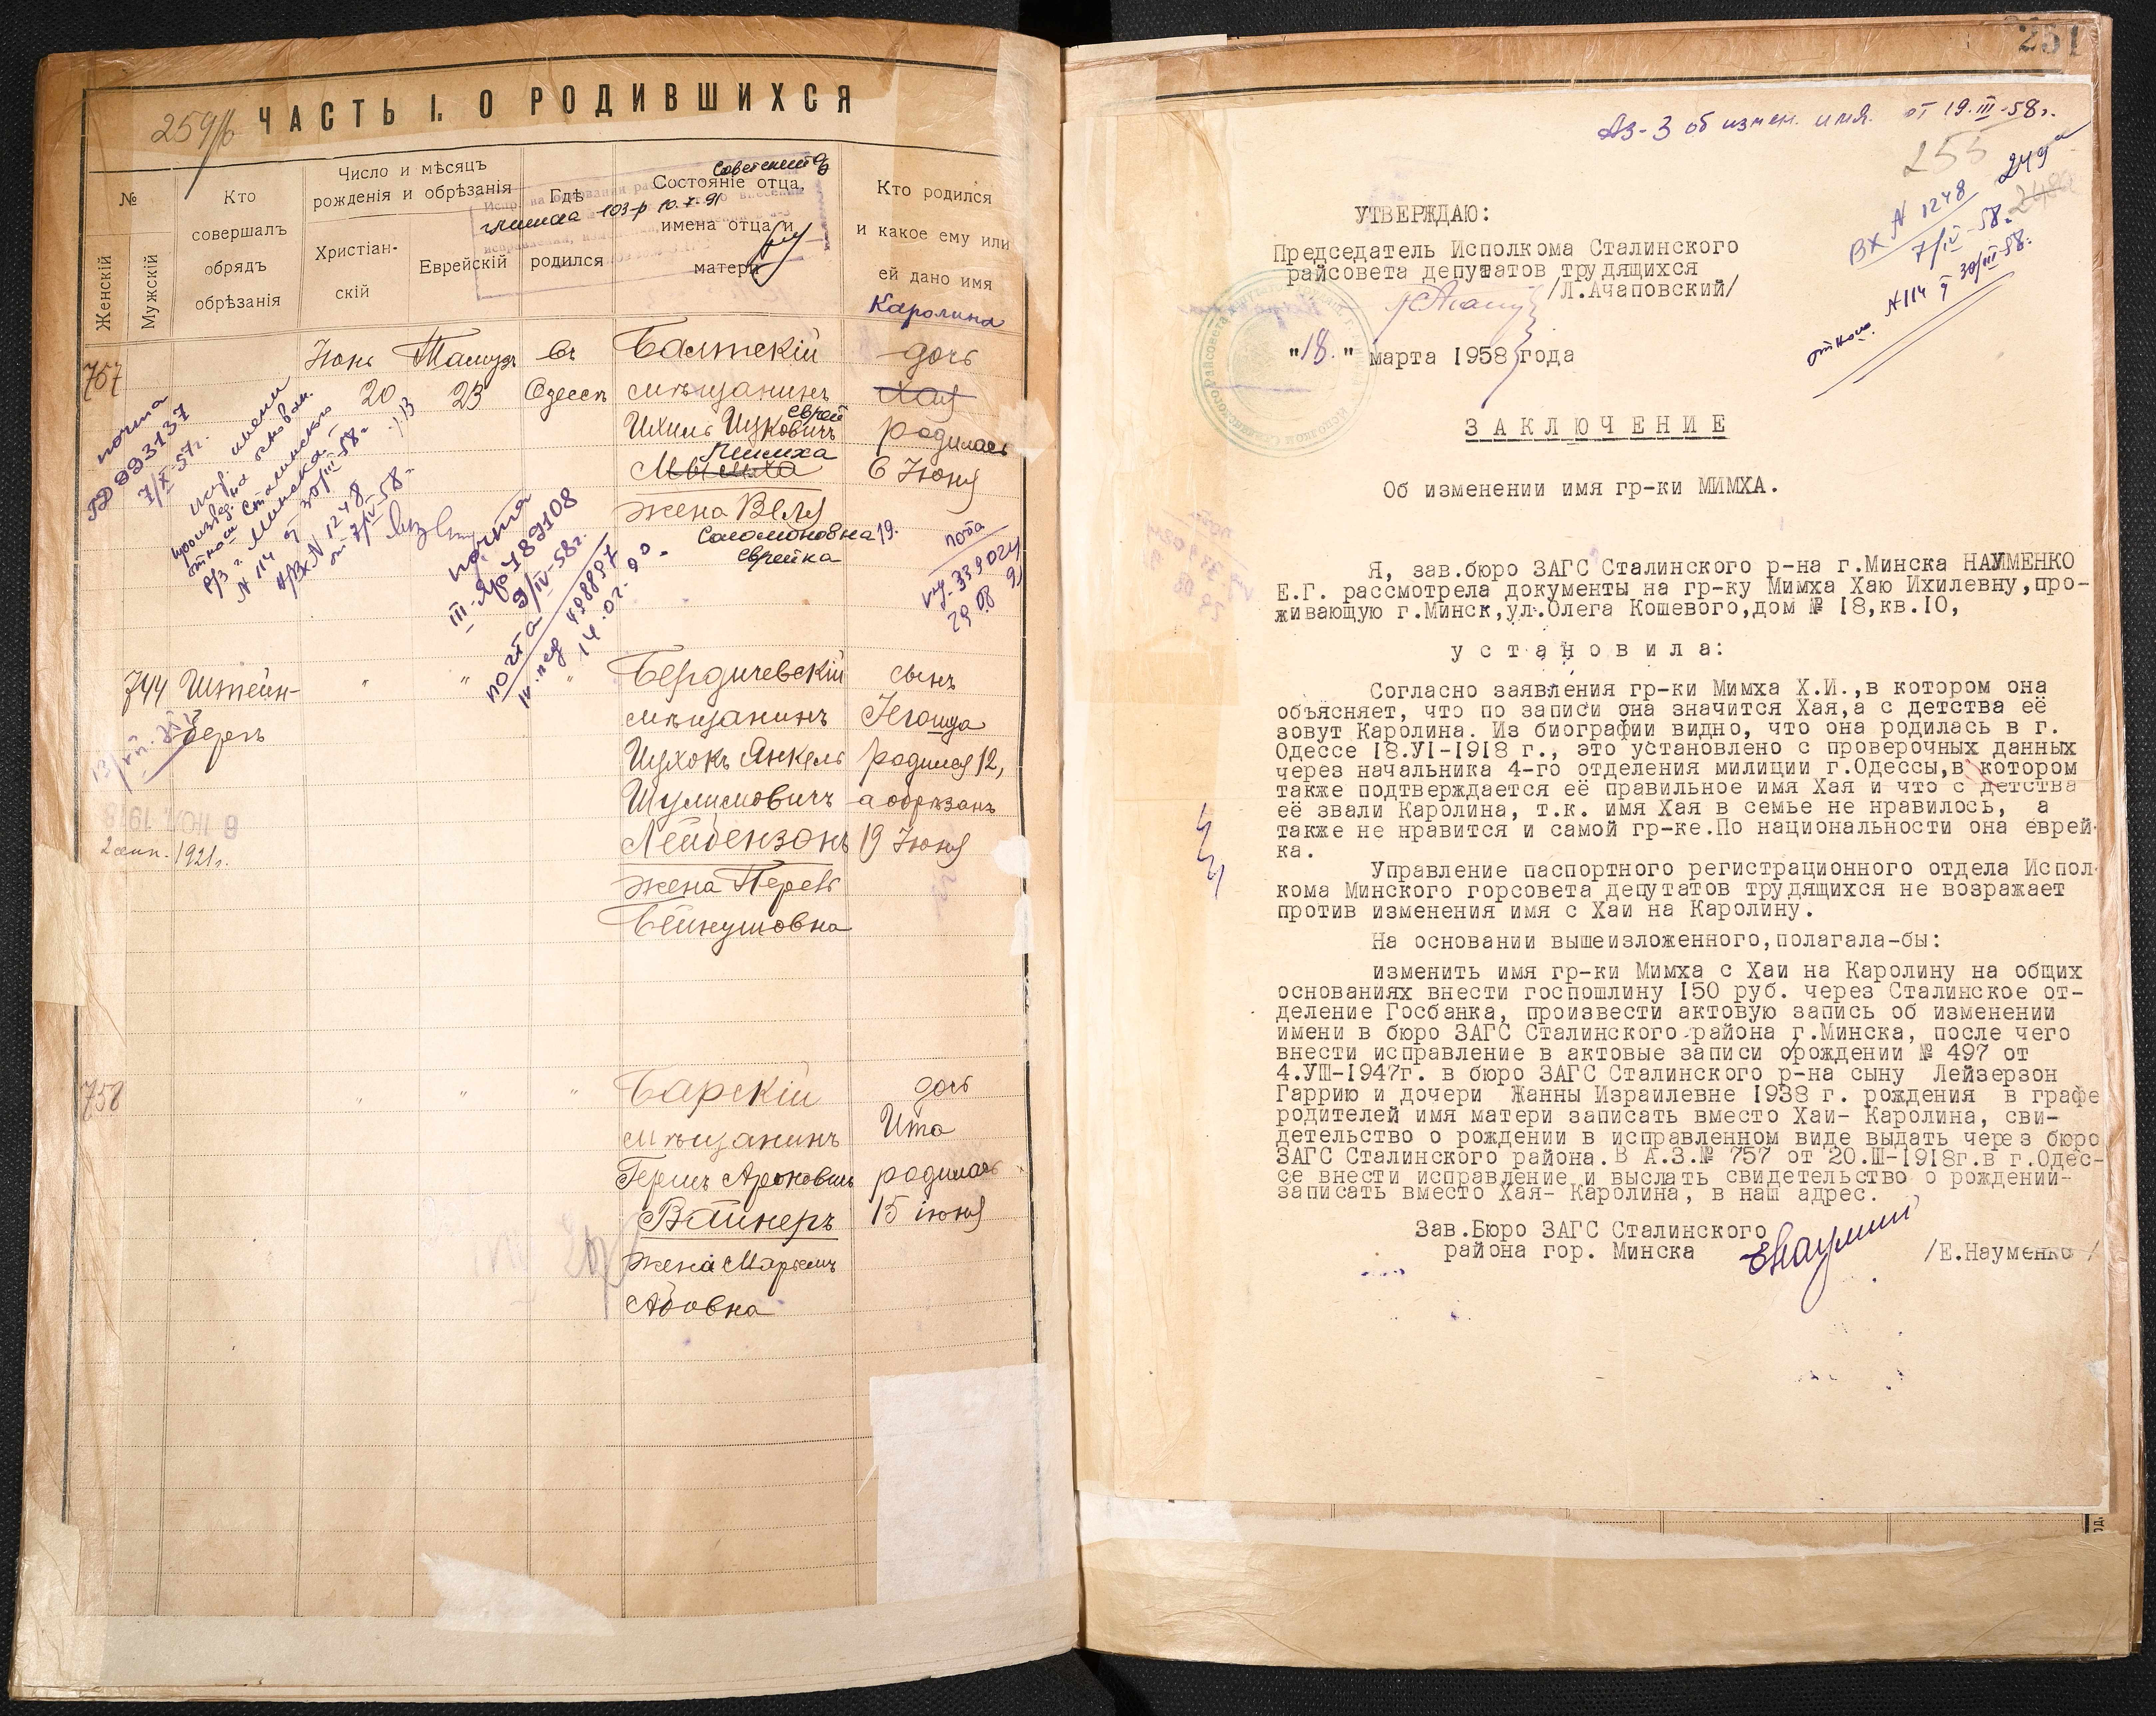 ЧАСТЬ I. О РОДИВШИХСЯ
№
Женскій
Мужскій
Кто
совершалъ
обрядъ
обрѣзанія
Число и мѣсяцъ
рожденія и обрѣзанія
Христіан-
скій
Еврейскій
Гдѣ
родился
Состояніе отца,
имена отца и
матери
Кто родился
и какое ему или
ей дано имя
Каролина
757
Іюнь Тамузъ въ Балтскій дочь
20 23 Одессѣ мѣщанинъ Хая
еврей
Ихиль Ицковичъ родилась
Мимха 6 Іюня
жена Веля
Соломоновна
еврейка
почта
7/X-57г.
почта
9/IV-58г.
14.02.90.
744 Штейн-
бергъ
" " " Бердичевскій сынъ
мѣщанинъ Іегошуа
Ицхокъ Янкель родился 12,
Шулимовичъ а обрѣзанъ
Лейбензонъ 19 Іюня
жена Перель
Бейнушовна
2 сент. 1921г.
758
" " " Барскій дочь
мѣщанинъ Ита
Гершъ Ароновичъ родилась
Вайнеръ 15 іюня
жена Марьемъ
Абовна
251
АЗ-3 об измен. имя. от 19.III-58г.
255
249
Вх N 1248
7/IV-58г.
N 114 30/III-58г.
УТВЕРЖДАЮ:
Председатель Исполкома Сталинского
райсовета депутатов трудящихся
/Л.Ачаповский/
"18." марта 1958 года
ЗАКЛЮЧЕНИЕ
Об изменении имя гр-ки МИМХА.
Я, зав.бюро ЗАГС Сталинского р-на г.Минска НАУМЕНКО
Е.Г. рассмотрела документы на гр-ку Мимха Хаю Ихилевну,про-
живающую г.Минск,ул.Олега Кошевого,дом № I8,кв.IO,
установила:
Согласно заявления гр-ки Мимха Х.И.,в котором она
объясняет, что по записи она значится Хая,а с детства её
зовут Каролина. Из биографии видно, что она родилась в г.
Одессе I8.УI-I9I8 г., это установлено с проверочных данных
через начальника 4-го отделения милиции г.Одессы,в котором
также подтверждается её правильное имя Хая и что с детства
её звали Каролина, т.к. имя Хая в семье не нравилось, а
также не нравится и самой гр-ке.По национальности она еврей-
ка.
Управление паспортного регистрационного отдела Испол-
кома Минского горсовета депутатов трудящихся не возражает
против изменения имя с Хаи на Каролину.
На основании вышеизложенного,полагала-бы:
изменить имя гр-ки Мимха с Хаи на Каролину на общих
основаниях внести госпошлину I50 руб. через Сталинское от-
деление Госбанка, произвести актовую запись об изменении
имени в бюро ЗАГС Сталинского района г.Минска, после чего
внести исправление в актовые записи о рождении № 497 от
4.УШ-I947г. в бюро ЗАГС Сталинского р-на сыну Лейзерзон
Гаррию и дочери Жанны Израилевне I938 г. рождения в графе
родителей имя матери записать вместо Хаи- Каролина, сви-
детельство о рождении в исправленном виде выдать через бюро
ЗАГС Сталинского района.В А.З.№ 757 от 20.Ш-I9I8г.в г.Одес-
се внести исправление и выслать свидетельство о рождении-
записать вместо Хая- Каролина, в наш адрес.
Зав.Бюро ЗАГС Сталинского
района гор. Минска /Е.Науменко/